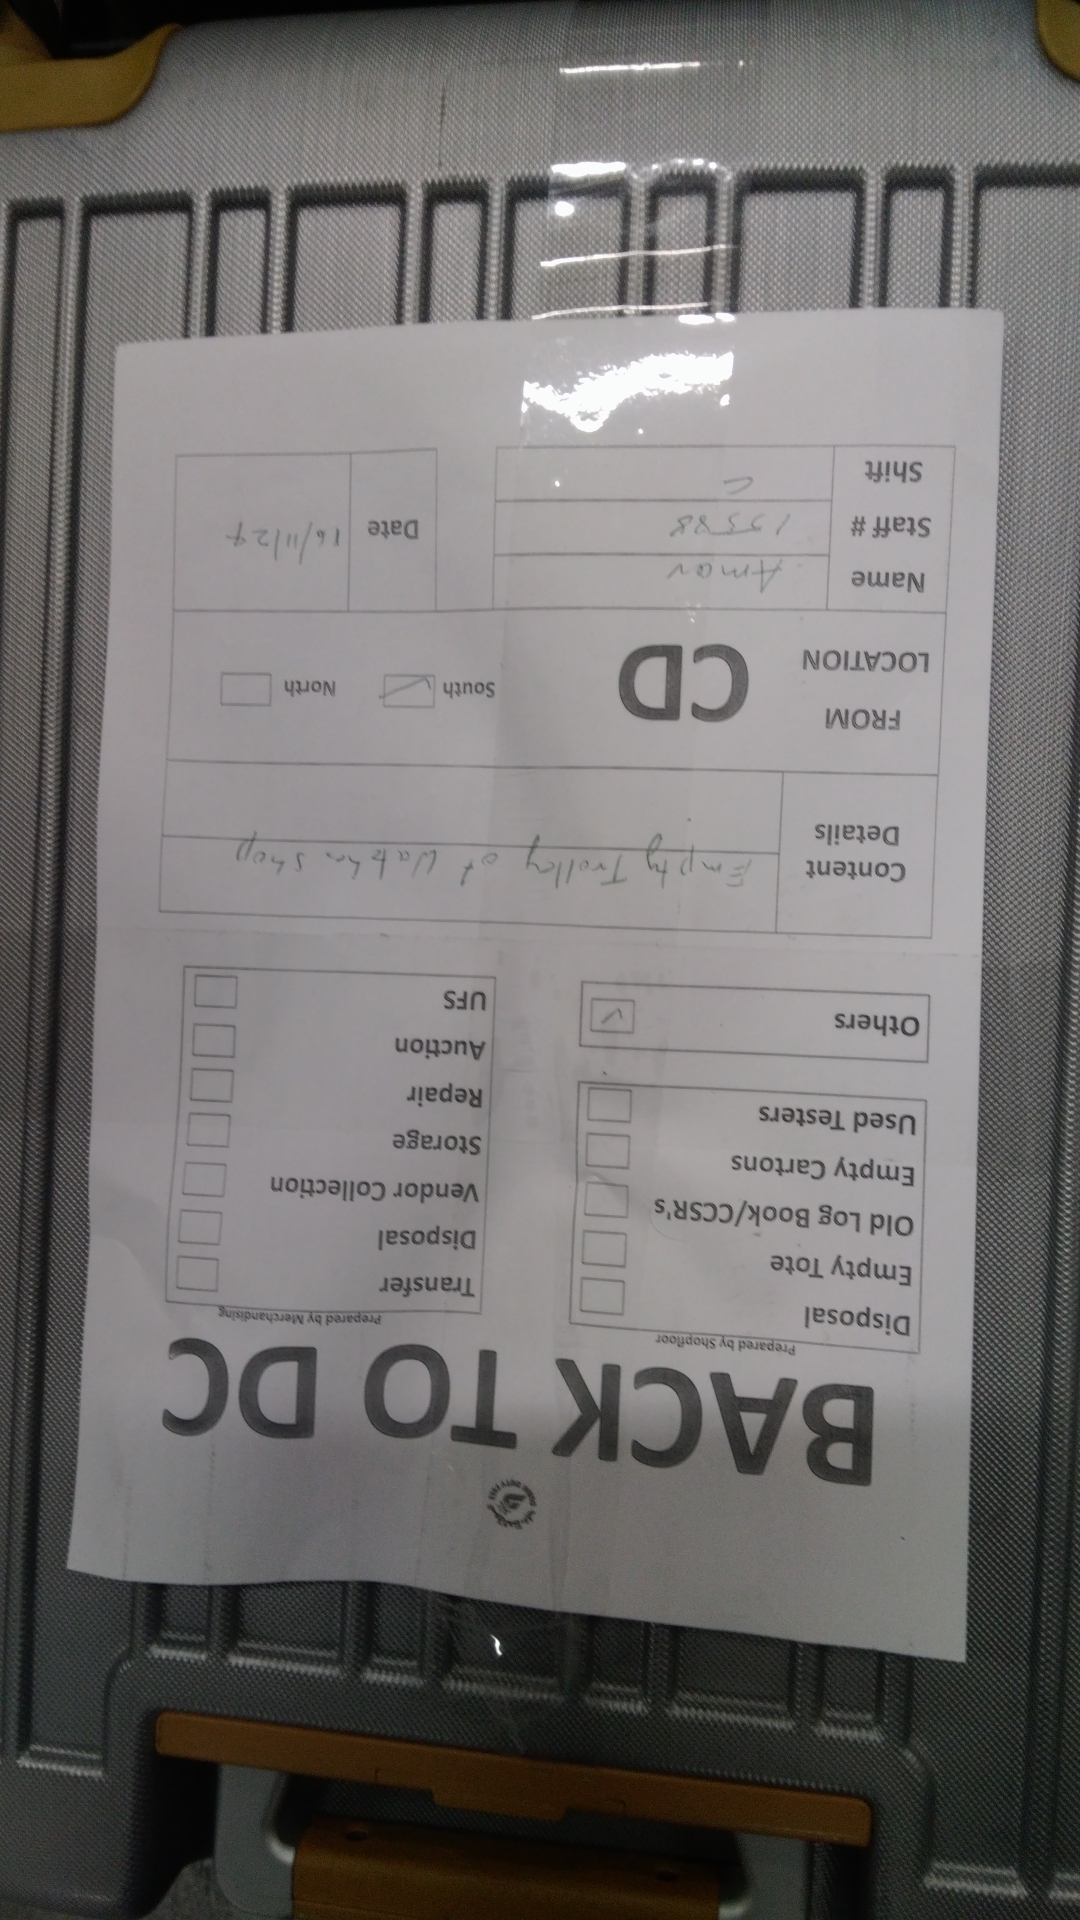 BACK TO DC
Prepared by Shopfloor
Disposal
Empty Tote
Old Log Book/CCSR's
Empty Cartons
Used Testers
Others
Prepared by Merchandising
Transfer
Disposal
Vendor Collection
Storage
Repair
Auction
UFS
Content Details
Empty Trolley at Watch shop
FROM LOCATION
CD
South
North
Name
Amar
Staff #
Shift
C
Date